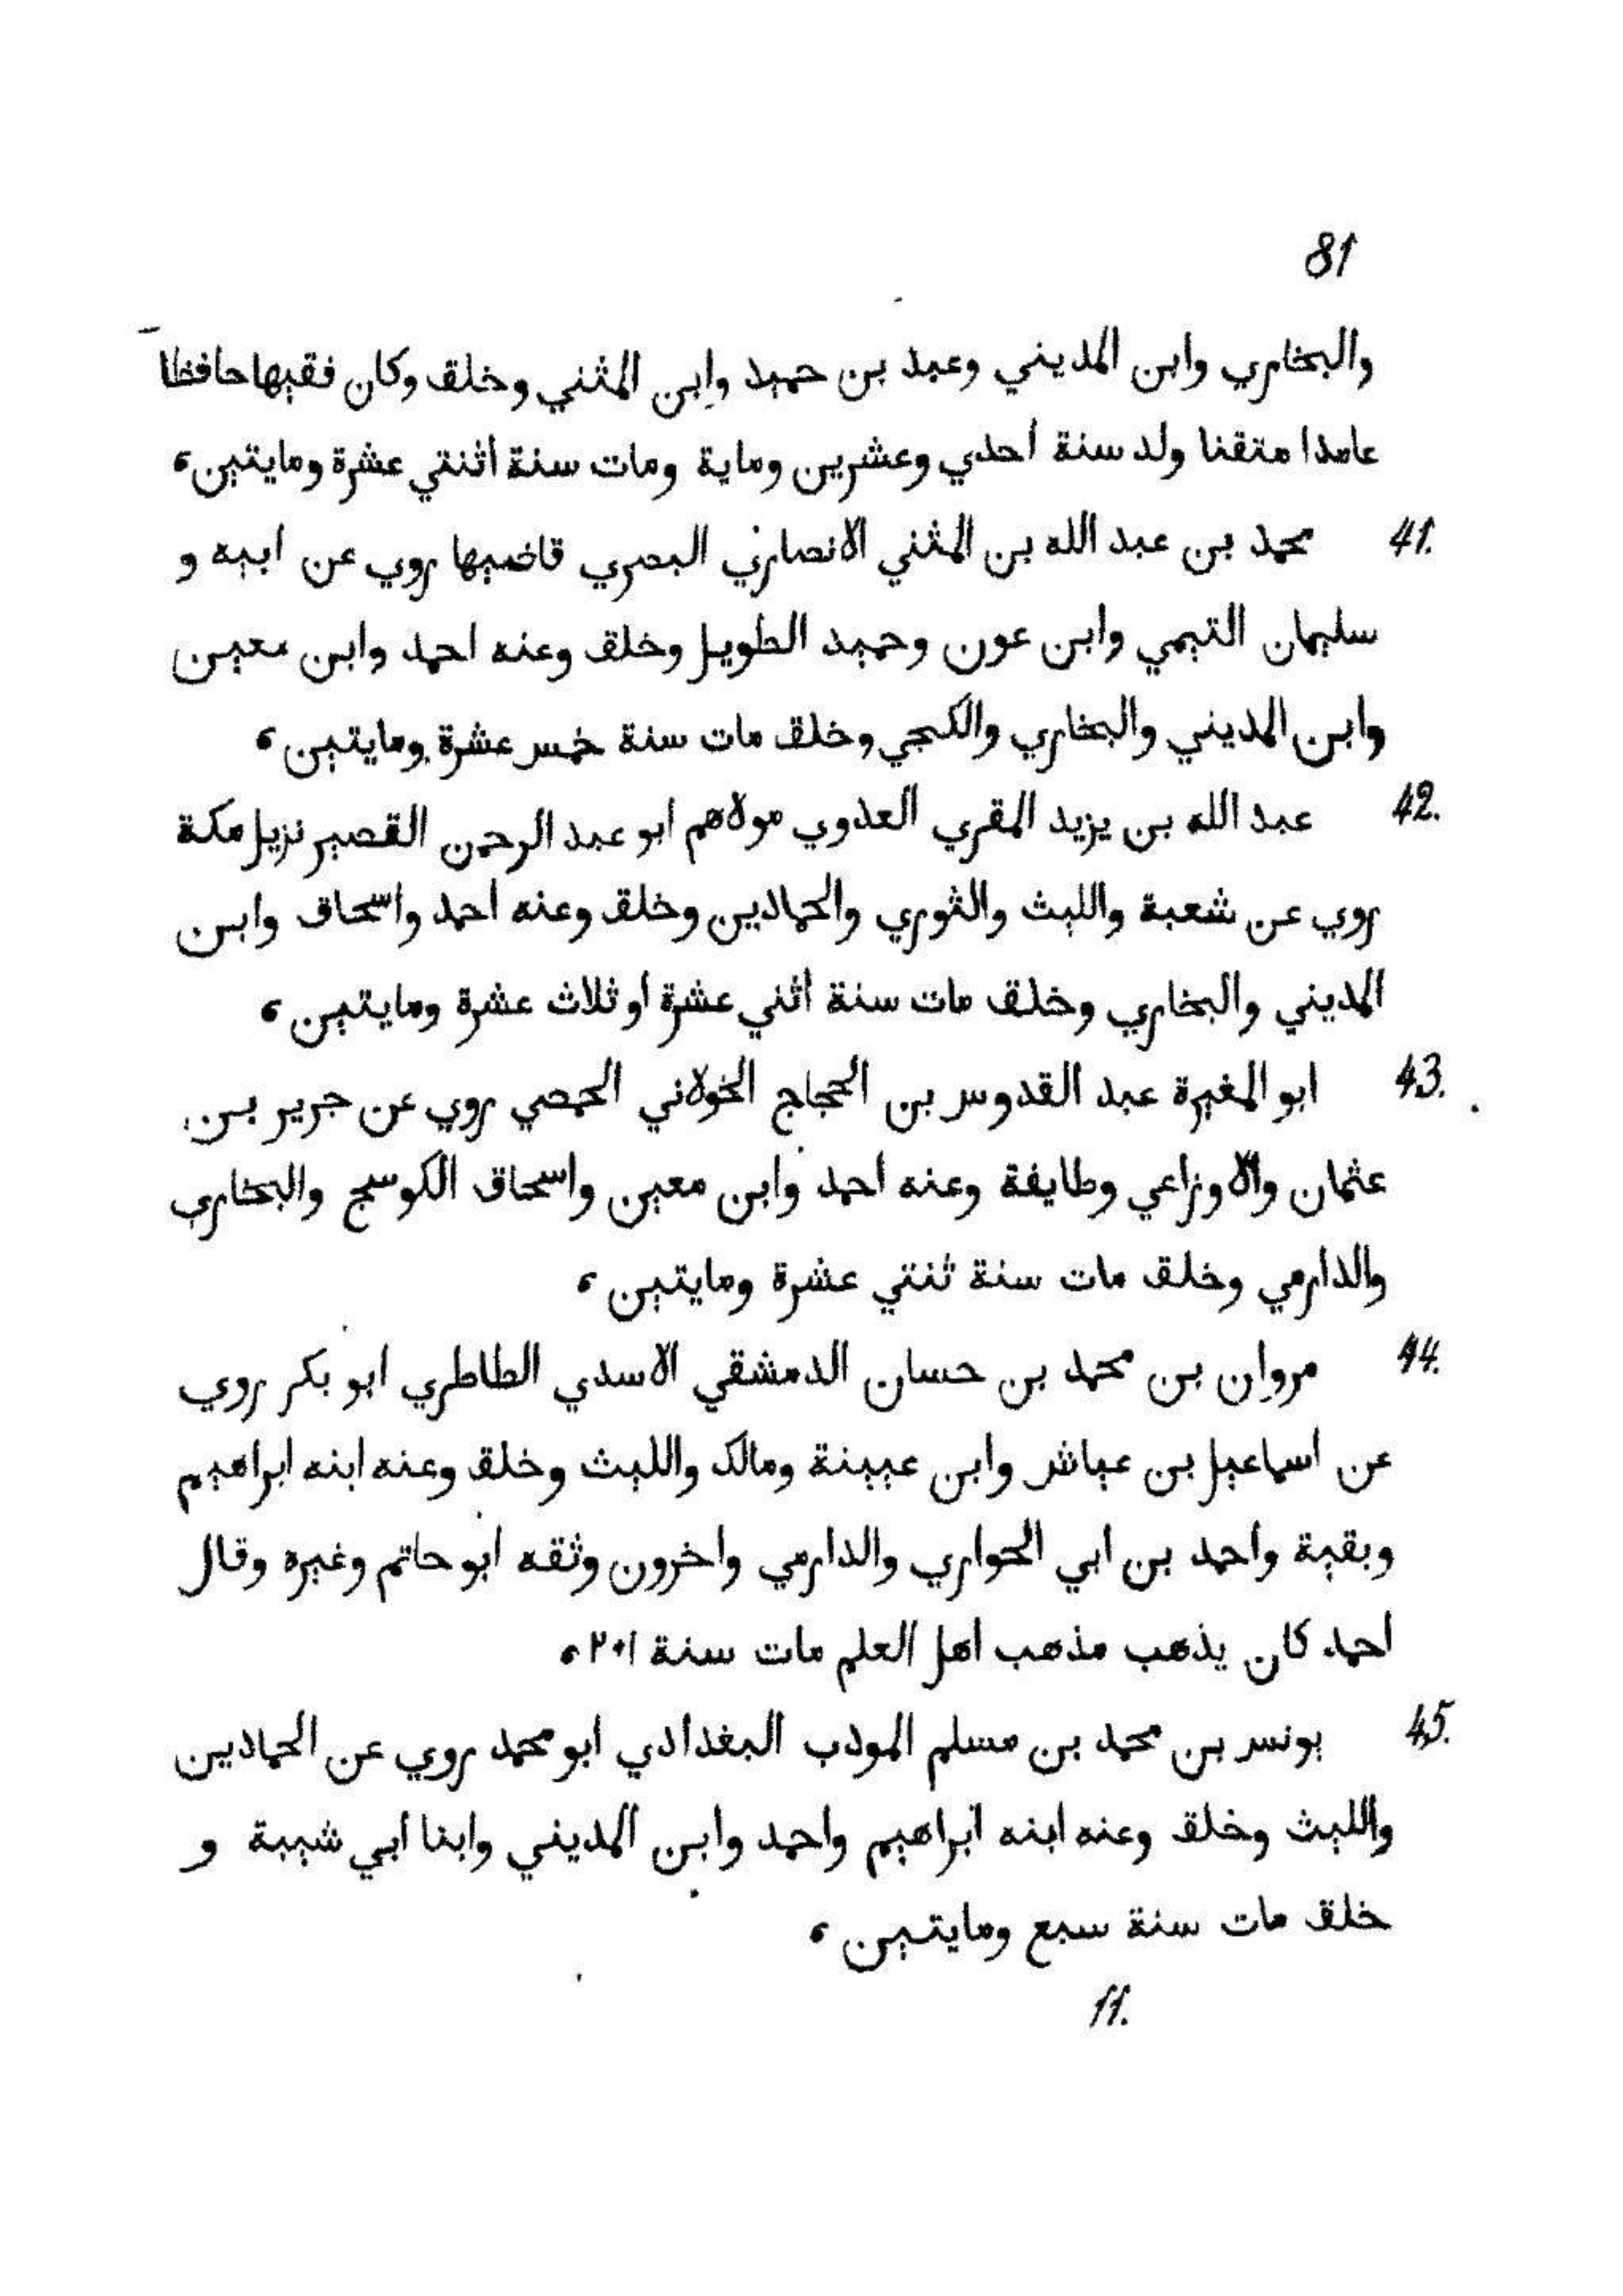 81
والبخاري وابن المديني وعبد بن حميد وابن المثني وخلق وكان فقيها حافظا
عابدا متقنا ولد سنة احدي وعشرين وماية ومات سنة اثنتي عشرة ومايتين،
41. محمد بن عبد الله بن المثني الانصاري البصري قاضيها روي عن ابيه و
سليمان التيمي وابن عون وحميد الطويل وخلق وعنه احمد وابن معين
وابن المديني والبخاري والكجي وخلق مات سنة خمس عشرة ومايتين،
42. عبد الله بن يزيد المقري العدوي مولاهم ابو عبد الرحمن القصير نزيل مكة
روي عن شعبة والليث والثوري والحمادين وخلق وعنه احمد واسحاق وابن
المديني والبخاري وخلق مات سنة اثني عشرة او ثلاث عشرة ومايتين،
43. ابو المغيرة عبد القدوس بن الحجاج الخولاني الحمصي روي عن جرير بن
عثمان والاوزاعي وطايفة وعنه احمد وابن معين واسحاق الكوسج والبخاري
والدارمي وخلق مات سنة ثنتي عشرة ومايتين،
44. مروان بن محمد بن حسان الدمشقي الاسدي الطاطري ابو بكر روي
عن اسماعيل بن عياش وابن عيينة ومالك والليث وخلق وعنه ابنه ابراهيم
وبقية واحمد بن ابي الحواري والدارمي واخرون وثقه ابو حاتم وغيره وقال
احمد كان يذهب مذهب اهل العلم مات سنة ٢٠١،
45. يونس بن محمد بن مسلم المودب البغدادي ابو محمد روي عن الحمادين
والليث وخلق وعنه ابنه ابراهيم واحمد وابن المديني وابنا ابي شيبة و
خلق مات سنة سبع ومايتين،
11.